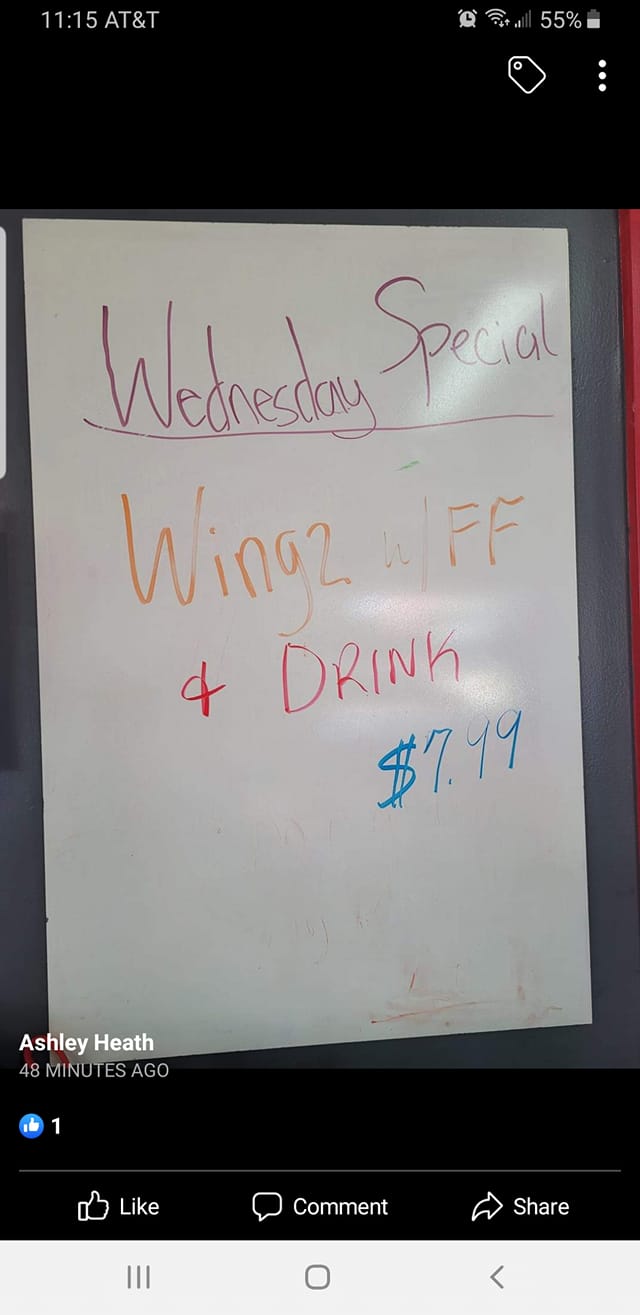 11:15 AT&T 55%
Wednesday Special
Wingz w/FF
& DRINK
$7.99
Ashley Heath
48 MINUTES AGO
1
Like Comment Share